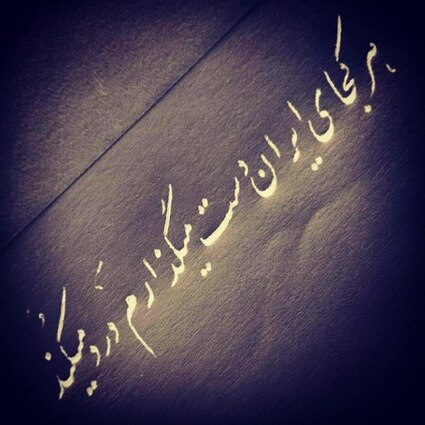 بر کجای ایران دست میگذارم درد میکند